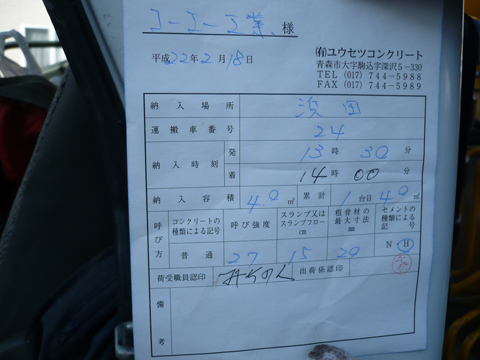 エーエー工業 様
平成22年2月18日
(有)ユウセツコンクリート
青森市大字駒込字深沢5-330
TEL (017) 744-5988
FAX (017) 744-5989
納入場所 浜田
運搬車番号 24
納入時刻 発 13時30分
着 14時00分
納入容積 4.0㎥ 累計 1台目 4.0㎥
呼び方 コンクリートの種類による記号 呼び強度 スランプ又はスランプフローcm 粗骨材の最大寸法mm セメントの種類による記号
普通 27 15 20 N H
荷受職員認印 みちのく 出荷係認印
備考